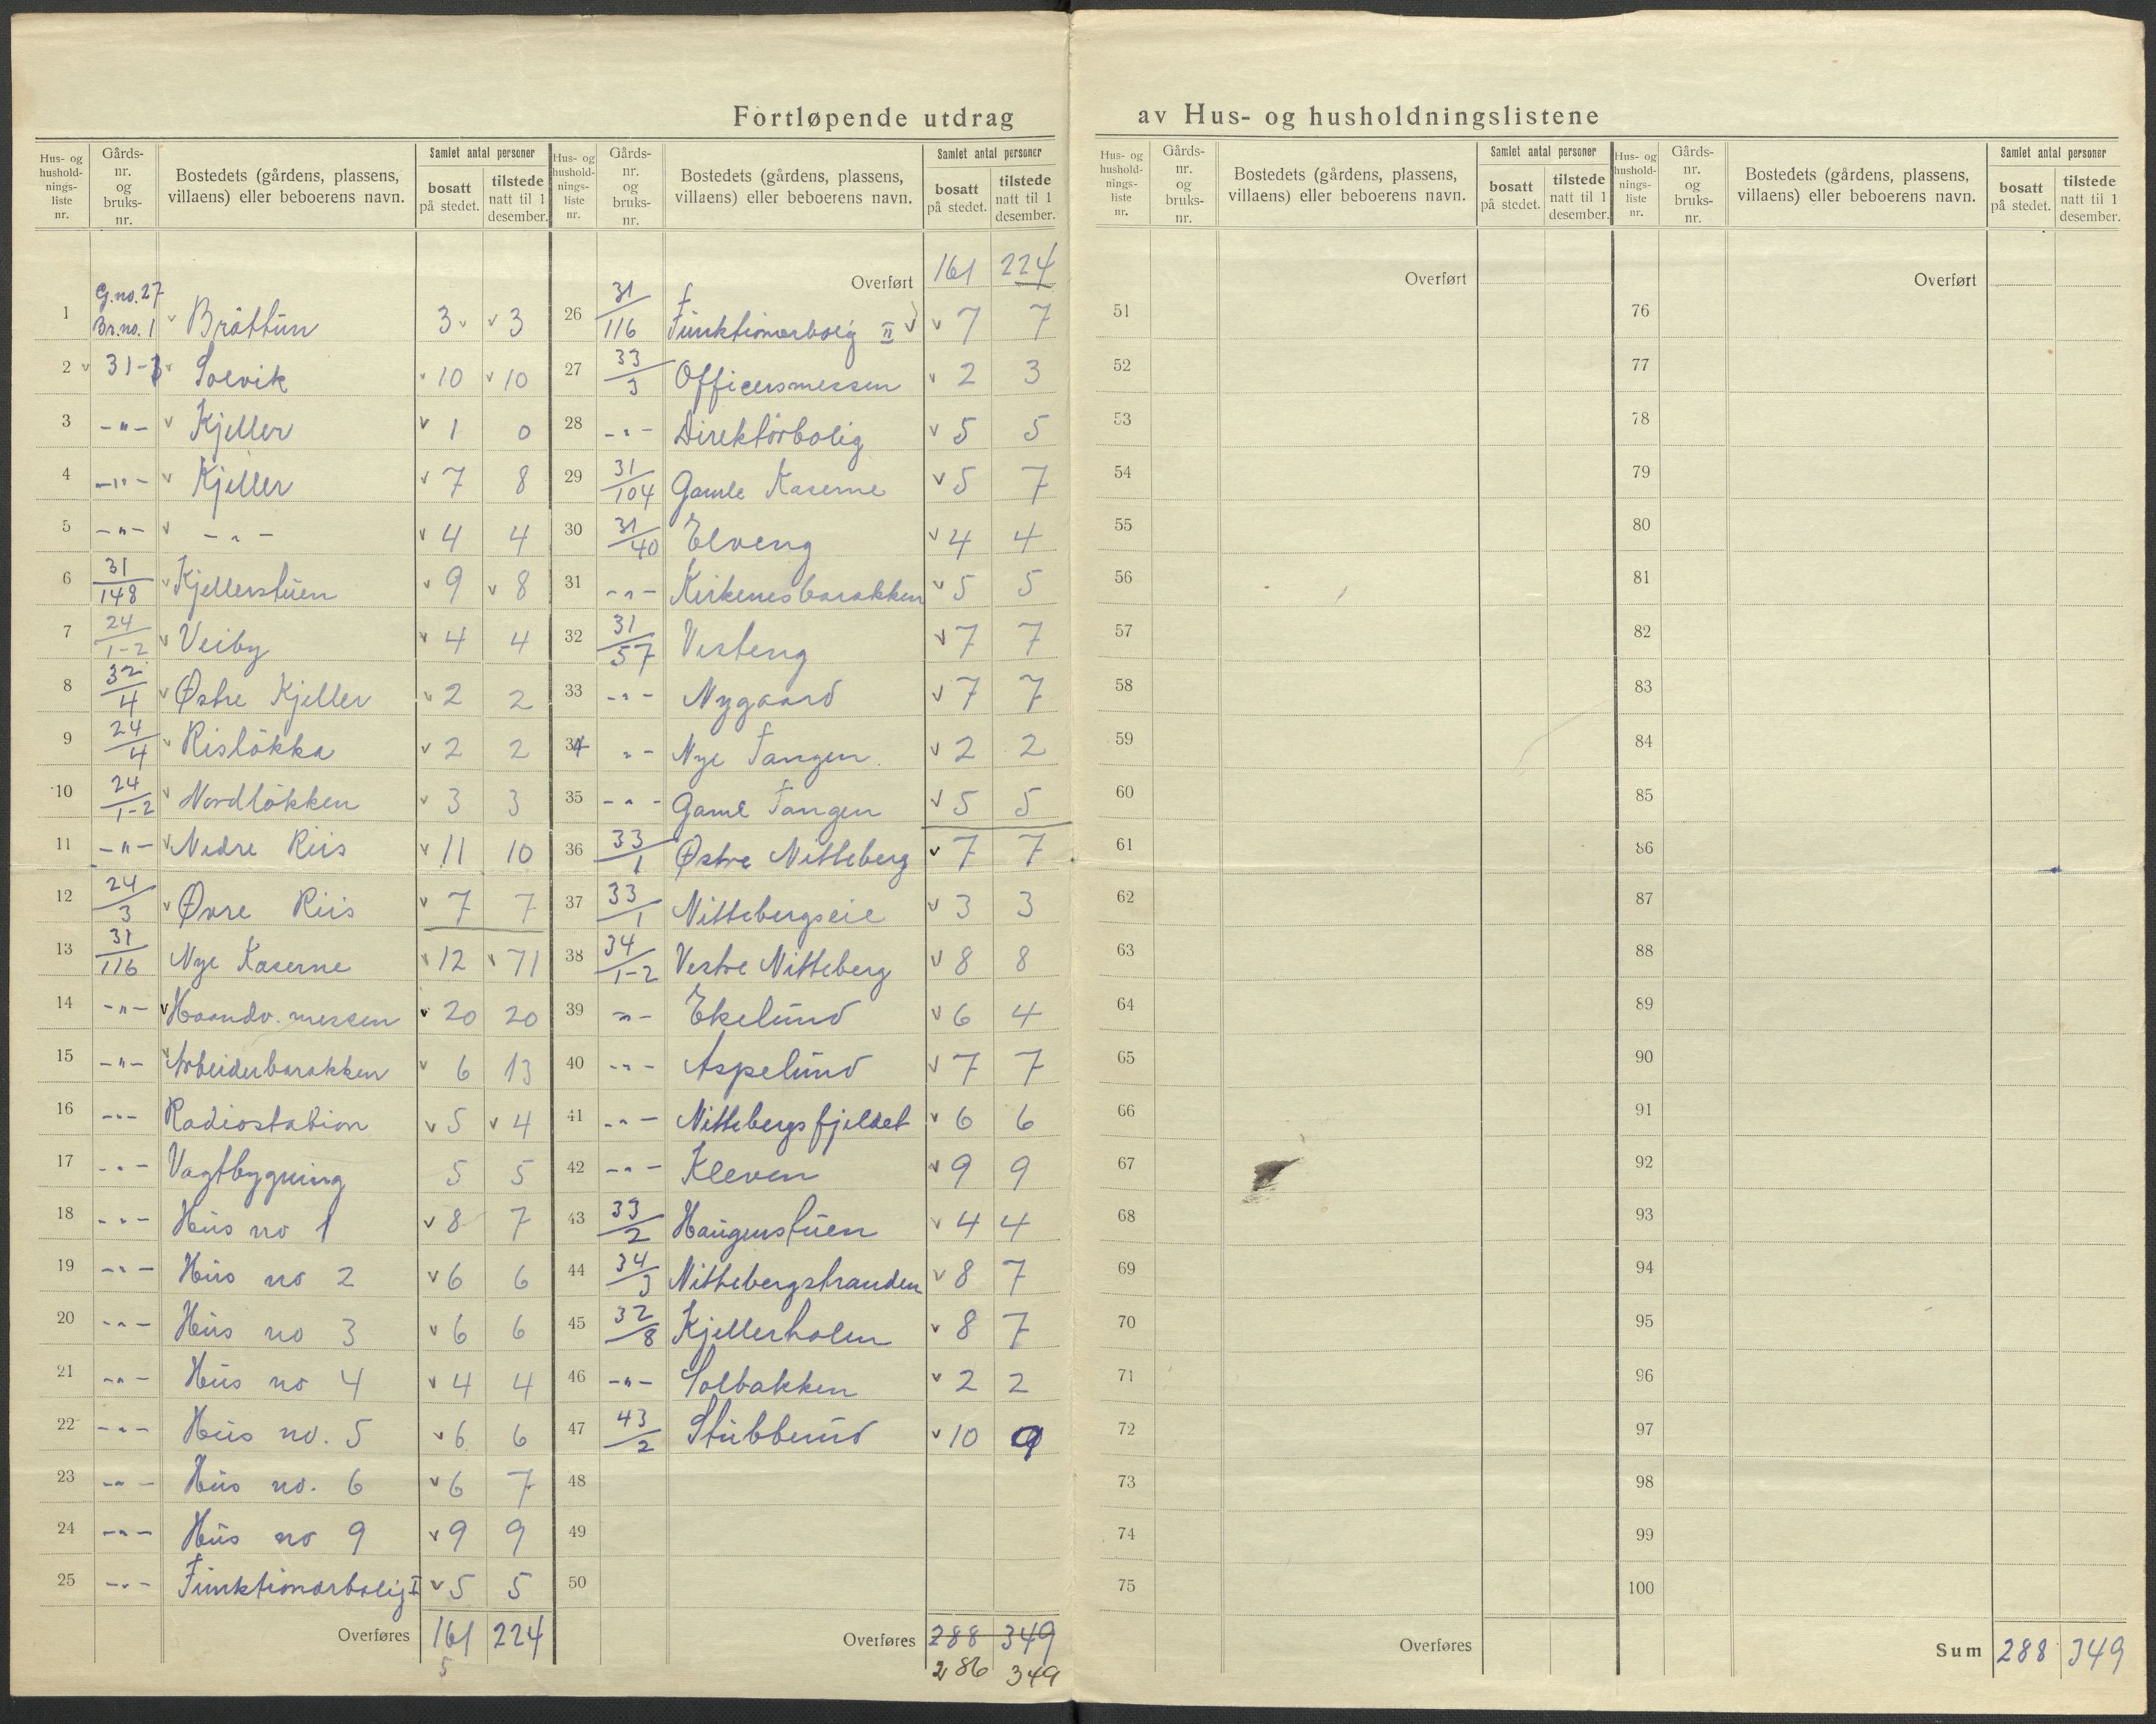 Fortløpende utdrag av Hus- og husholdningslistene
Hus- og hushold- nings- liste nr. | Gårds- nr. og bruks- nr. | Bostedets (gårdens, plassens, villaens) eller beboerens navn. | Samlet antal personer | bosatt på stedet. | tilstede natt til 1 desember.
1 G.no. 27 Br.no. 1 v Bråttun 3 v v 3
2 v 31-1 v Solvik v 10 v 10
3 -"- v Kjeller v 1 0
4 -"- v Kjeller v 7 8
5 -"- v -"- v 4 4
6 31/148 v Kjellerstuen v 9 v 8
7 24/1-2 v Veiby v 4 4
8 32/4 v Østre Kjeller v 2 2
9 24/4 v Risløkka v 2 2
10 24/1-2 v Nordløkken v 3 3
11 -"- v Nedre Riis v 11 10
12 24/3 v Øvre Riis v 7 7
13 31/116 Nye Kaserne v 12 v 71
14 -"- v Haandv. messen v 20 20
15 -"- v Arbeiderbarakken v 6 13
16 -"- Radiostation v 5 v 4
17 -"- Vagtbygning 5 5
18 -"- Hus no 1 v 8 7
19 -"- Hus no 2 v 6 6
20 -"- Hus no 3 v 6 6
21 -"- Hus no 4 v 4 4
22 -"- Hus no. 5 v 6 6
23 -"- Hus no. 6 v 6 7
24 -"- Hus no 9 v 9 9
25 -"- Funktionærbolig I v 5 5
Overføres 161 224
5
Hus- og hushold- nings- liste nr. | Gårds- nr. og bruks- nr. | Bostedets (gårdens, plassens, villaens) eller beboerens navn. | Samlet antal personer | bosatt på stedet. | tilstede natt til 1 desember.
Overført 161 224
26 31/116 Funktionærbolig II v v 7 7
27 33/3 Officersmessen v 2 3
28 -"- Direktørbolig v 5 5
29 31/104 Gamle Kaserne v 5 7
30 31/40 Elveng v 4 4
31 -"- Kirkenesbarakken v 5 5
32 31/57 Vesteng v 7 7
33 -"- Nygaard v 7 7
34 "- Nye Tangen. v 2 2
35 -"- Gaml Tangen v 5 5
36 33/1 Østre Nitteberg v 7 7
37 33/1 Nittebergseie v 3 3
38 34/1-2 Vestre Nitteberg v 8 8
39 "- Ekelund v 6 4
40 -"- Aspelund v 7 7
41 -"- Nittebergsfjeldet v 6 6
42 -"- Kleven v 9 9
43 33/2 Haugenstuen v 4 4
44 34/3 Nittebergstranden v 8 7
45 32/8 Kjellerholen v 8 7
46 -"- Solbakken v 2 2
47 43/2 Stubberud v 10 9
48
49
50
Overføres 288 349
286 349
Hus- og hushold- nings- liste nr. | Gårds- nr. og bruks- nr. | Bostedets (gårdens, plassens, villaens) eller beboerens navn. | Samlet antal personer | bosatt på stedet. | tilstede natt til 1 desember.
Overført
51
52
53
54
55
56
57
58
59
60
61
62
63
64
65
66
67
68
69
70
71
72
73
74
75
Overføres
Hus- og hushold- nings- liste nr. | Gårds- nr. og bruks- nr. | Bostedets (gårdens, plassens, villaens) eller beboerens navn. | Samlet antal personer | bosatt på stedet. | tilstede natt til 1 desember.
Overført
76
77
78
79
80
81
82
83
84
85
86
87
88
89
90
91
92
93
94
95
96
97
98
99
100
Sum 288 349